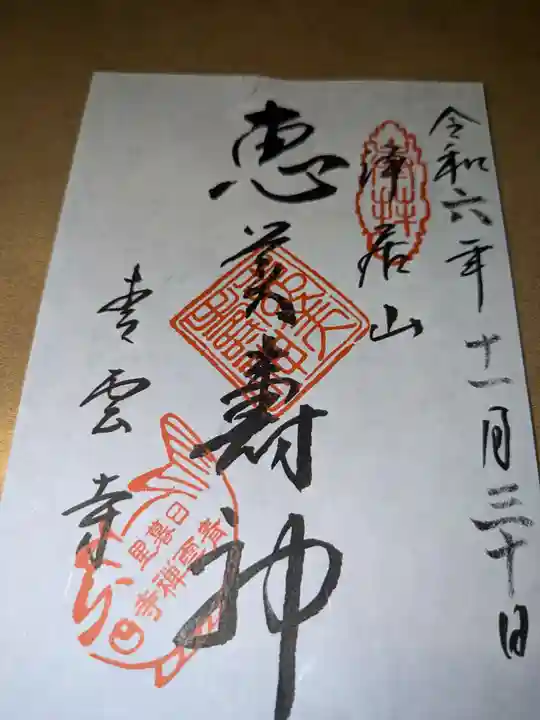 令和六年十一月三十日
浄居山
恵美寿神
青雲寺
日暮里
青雲禅寺